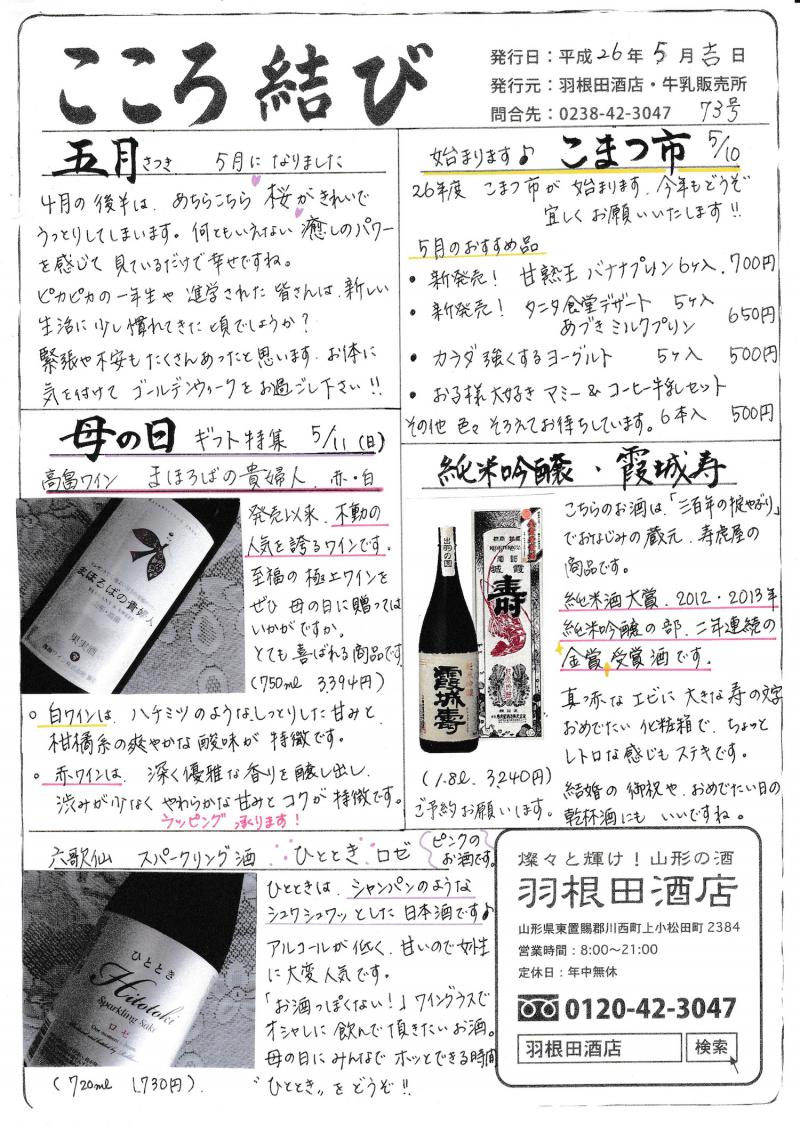 こころ結び
発行日：平成26年5月吉日
発行元：羽根田酒店・牛乳販売所
問合先：0238-42-3047 73号
五月 さつき 5月になりました
4月の後半は、あちらこちら桜がきれいで
うっとりしてしまいます。何ともいえない癒しのパワー
を感じて見ているだけで幸せですね。
ピカピカの一年生や進学された皆さんは、新しい
生活に少し慣れてきた頃でしょうか？
緊張や不安もたくさんあったと思います。お体に
気を付けてゴールデンウィークをお過ごし下さい!!
始まります♪ こまつ市 5/10
26年度 こまつ市が始まります。今年もどうぞ
宜しくお願いいたします!!
5月のおすすめ品
• 新発売！ 甘熟王バナナプリン6ヶ入 700円
• 新発売！ タニタ食堂デザート 5ヶ入
あづきミルクプリン 650円
• カラダ強くするヨーグルト 5ヶ入 500円
• お子様大好きマミー＆コーヒー牛乳セット
その他色々そろえてお待ちしています。6本入 500円
母の日 ギフト特集 5/11(日)
高畠ワイン まほろばの貴婦人 赤・白
発売以来、不動の
人気を誇るワインです。
至福の極上ワインを
ぜひ母の日に贈っては
いかがですか。
とても喜ばれる商品です。
(750ml 3,394円)
まほろばの貴婦人
果実酒
○ 白ワインは、ハチミツのようなしっとりした甘みと、
柑橘系の爽やかな酸味が特徴です。
○ 赤ワインは、深く優雅な香りを醸し出し、
渋みが少なくやわらかな甘みとコクが特徴です。
ラッピング承ります！
純米吟醸・霞城寿
こちらのお酒は、「三百年の掟やぶり」
でおなじみの蔵元、寿虎屋の
商品です。
純米酒大賞、2012・2013年
純米吟醸の部、二年連続の
金賞受賞酒です。
真っ赤なエビに大きな寿の文字
おめでたい化粧箱で、ちょっと
レトロな感じもステキです。
結婚の御祝や、おめでたい日の
乾杯酒にもいいですね。
出羽の国
霞城寿
寿
(1.8l. 3,240円)
ご予約お願いします。
六歌仙 スパークリング酒 ひととき ロゼ
ピンクの
お酒です。
ひとときは、シャンパンのような
シュワシュワッとした日本酒です♪
アルコールが低く、甘いので女性
に大変人気です。
「お酒っぽくない！」ワイングラスで
オシャレに飲んで頂きたいお酒。
母の日にみんなでホッとできる時間
“ひととき”をどうぞ!!
ひととき
Hitotoki
Sparkling Sake
ロゼ
(720ml 1,730円)
燦々と輝け！山形の酒
羽根田酒店
山形県東置賜郡川西町上小松田町2384
営業時間：8:00～21:00
定休日：年中無休
0120-42-3047
羽根田酒店 検索